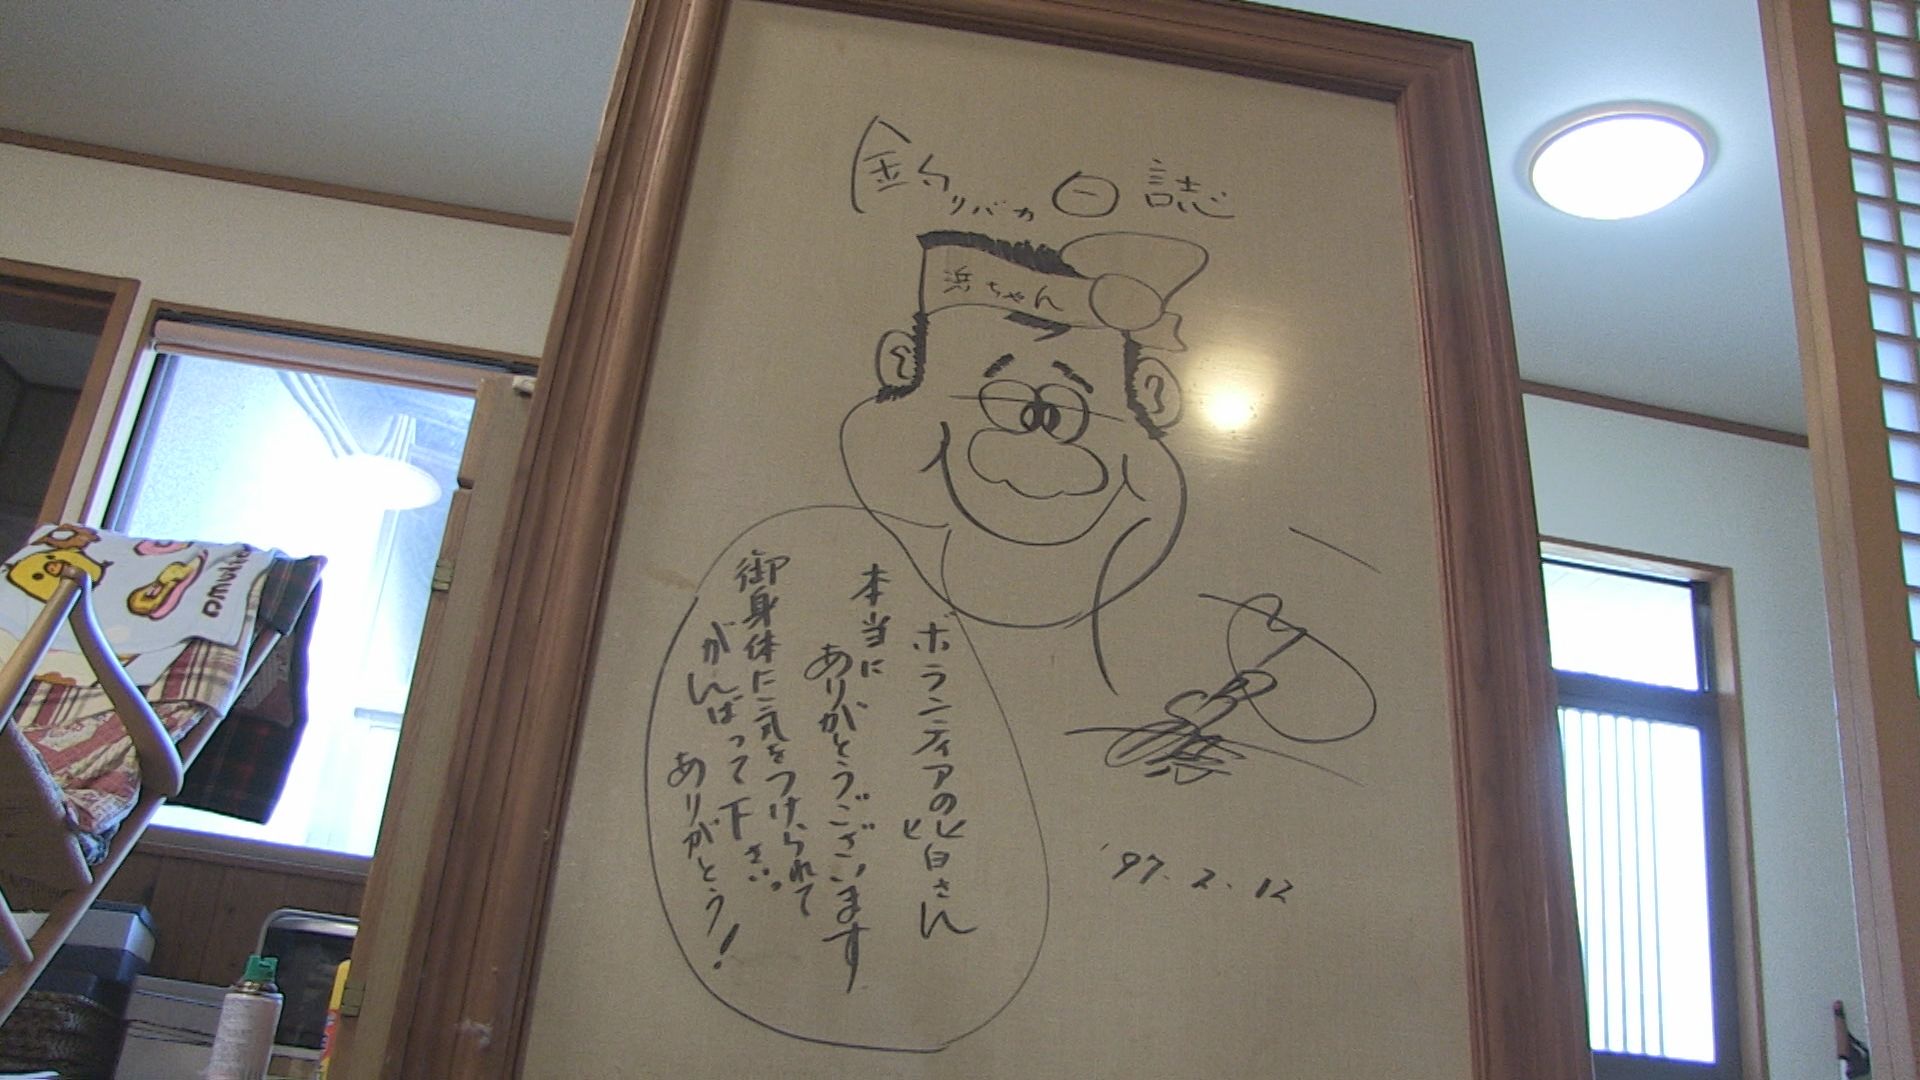 釣りバカ日誌
浜ちゃん
ボランティアの皆さん
本当に
ありがとうございます
御身体に気をつけられて
がんばって下さい
ありがとう!
'97.2.12